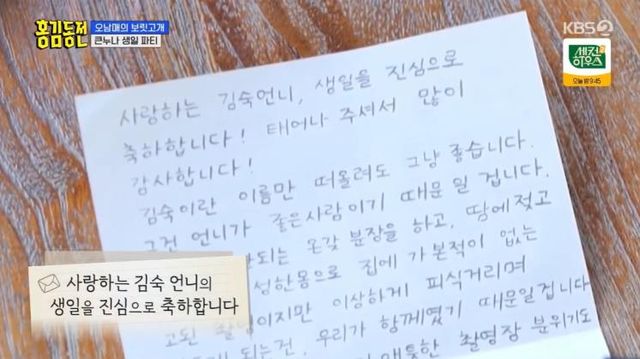 홍김동전
오남매의 보릿고개
큰누나 생일 파티
KBS2
세컨하우스
오늘 밤 9:45
사랑하는 김숙언니, 생일을 진심으로
축하합니다! 태어나 주셔서 많이
감사합니다!
김숙이란 이름만 떠올려도 그냥 좋습니다.
그건 언니가 좋은사람이기 때문 일겁니다.
되는 온갖 분장을 하고, 땀에젖고
성한몸으로 집에 가본적이 없는
고된 이지만 이상하게 피식거리며
되는건, 우리가 함께였기 때문일겁니다
촬영장 분위기도
사랑하는 김숙 언니의
생일을 진심으로 축하합니다